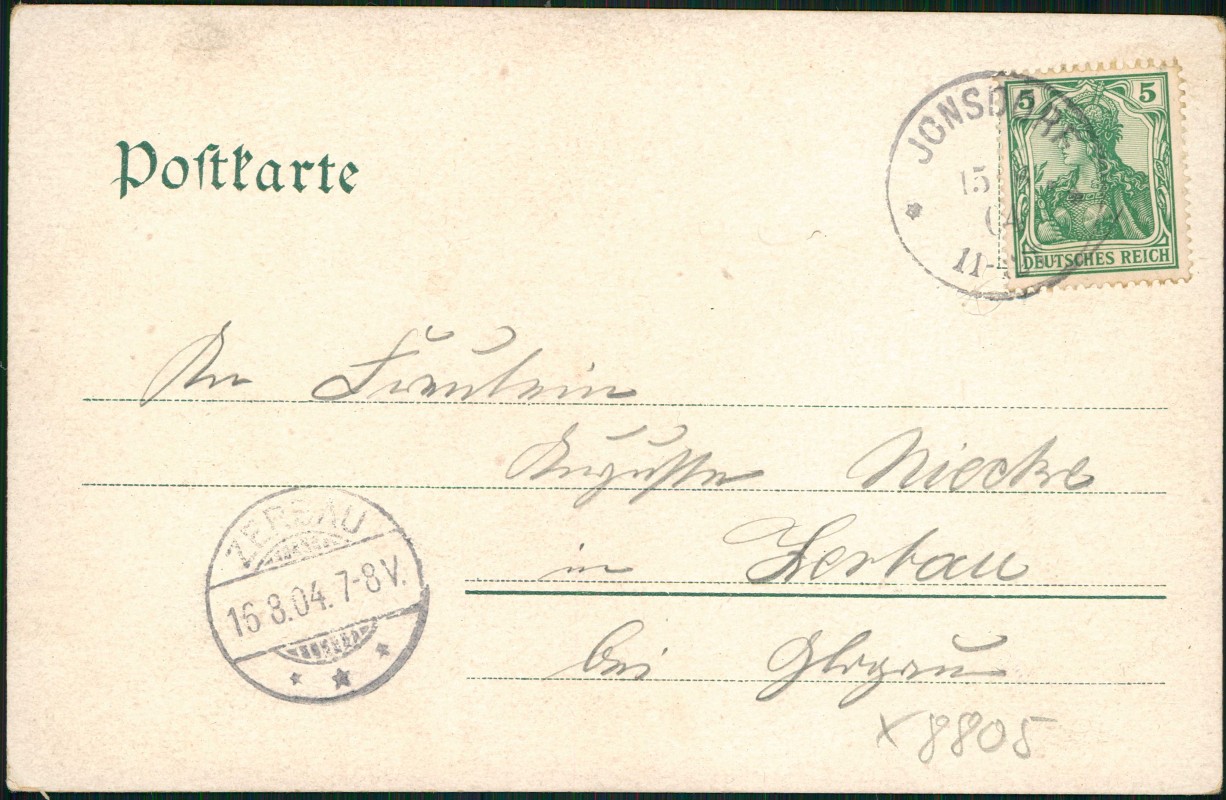 Postkarte
JONSDORF
15
04
11-
5 5
DEUTSCHES REICH
An Fräulein
Auguste Niecke
in Zerbau
bei Glogau
ZERBAU
16.8.04.7-8V.
x 8805